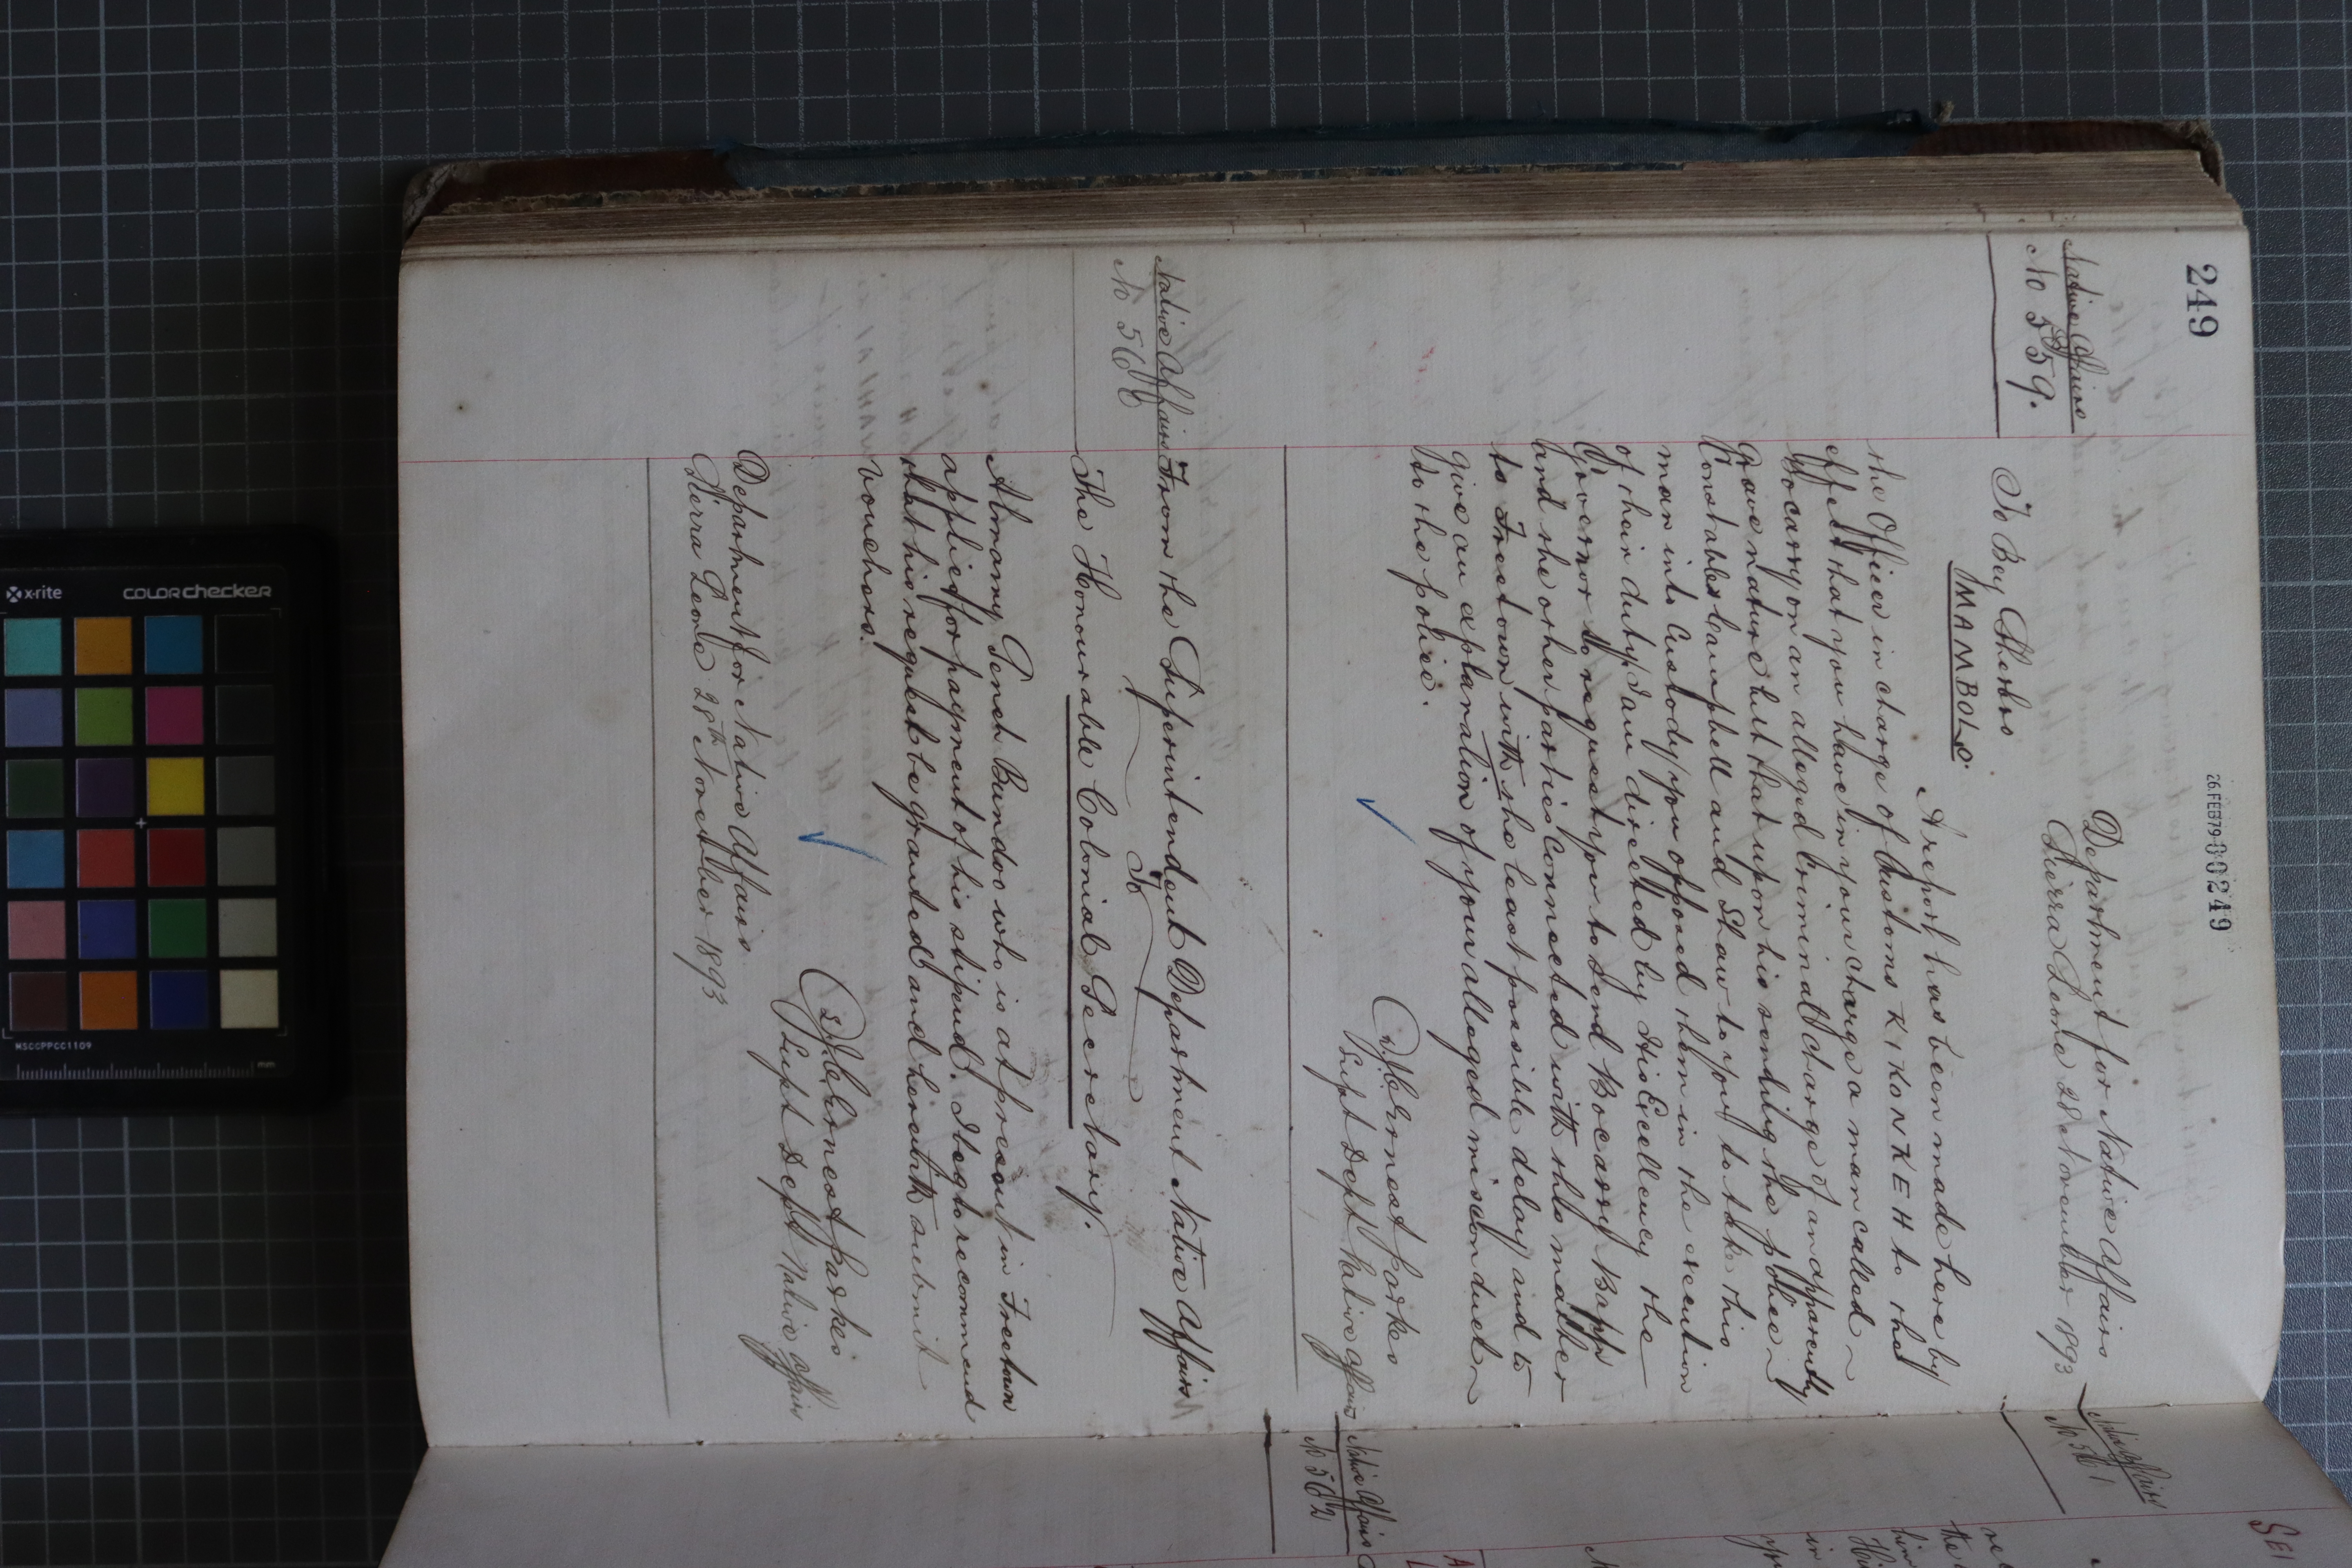 249
26.FEB79-00249
Native Affairs
No 559.
Department for Native Affairs
Sierra Leone 28 November 1893
To Bey Sherbro
MAMBOLO.
A report has been made here by
the Officer in charge of Customs KIKONKEH to the
effect that you have in your charge a man called
Bocarry on an alleged criminal charge of an apparently
grave nature but that upon his sending the police
Constables Campbell and Shaw to you to take this
man into Custody you opposed them in the execution
of their duty, I am directed by His Excellency the
Governor to request you to send Bocarry Bapp
and the other parties connected with this matter
to Freetown with the least possible delay and to
give an explanation of your alleged misconduct
to the police.
JC Ernest Parkes
Supt Dept Native Affairs
Native Affairs
No 560
From the Superintendent Department Native Affairs
To
The Honourable Colonial Secretary.
Almamy Senna Bundoo who is at present in Freetown
applied for payment of his stipend. I beg to recommend
that his request be granted and herewith submit
vouchers.
JC Ernest Parkes
Supt Dept Native Affairs
Department for Native Affairs
Sierra Leone 28th November 1893
Native Affairs
No 561
Native Affairs
No 562
x-rite colorchecker
MSCCPPCC1109
mm